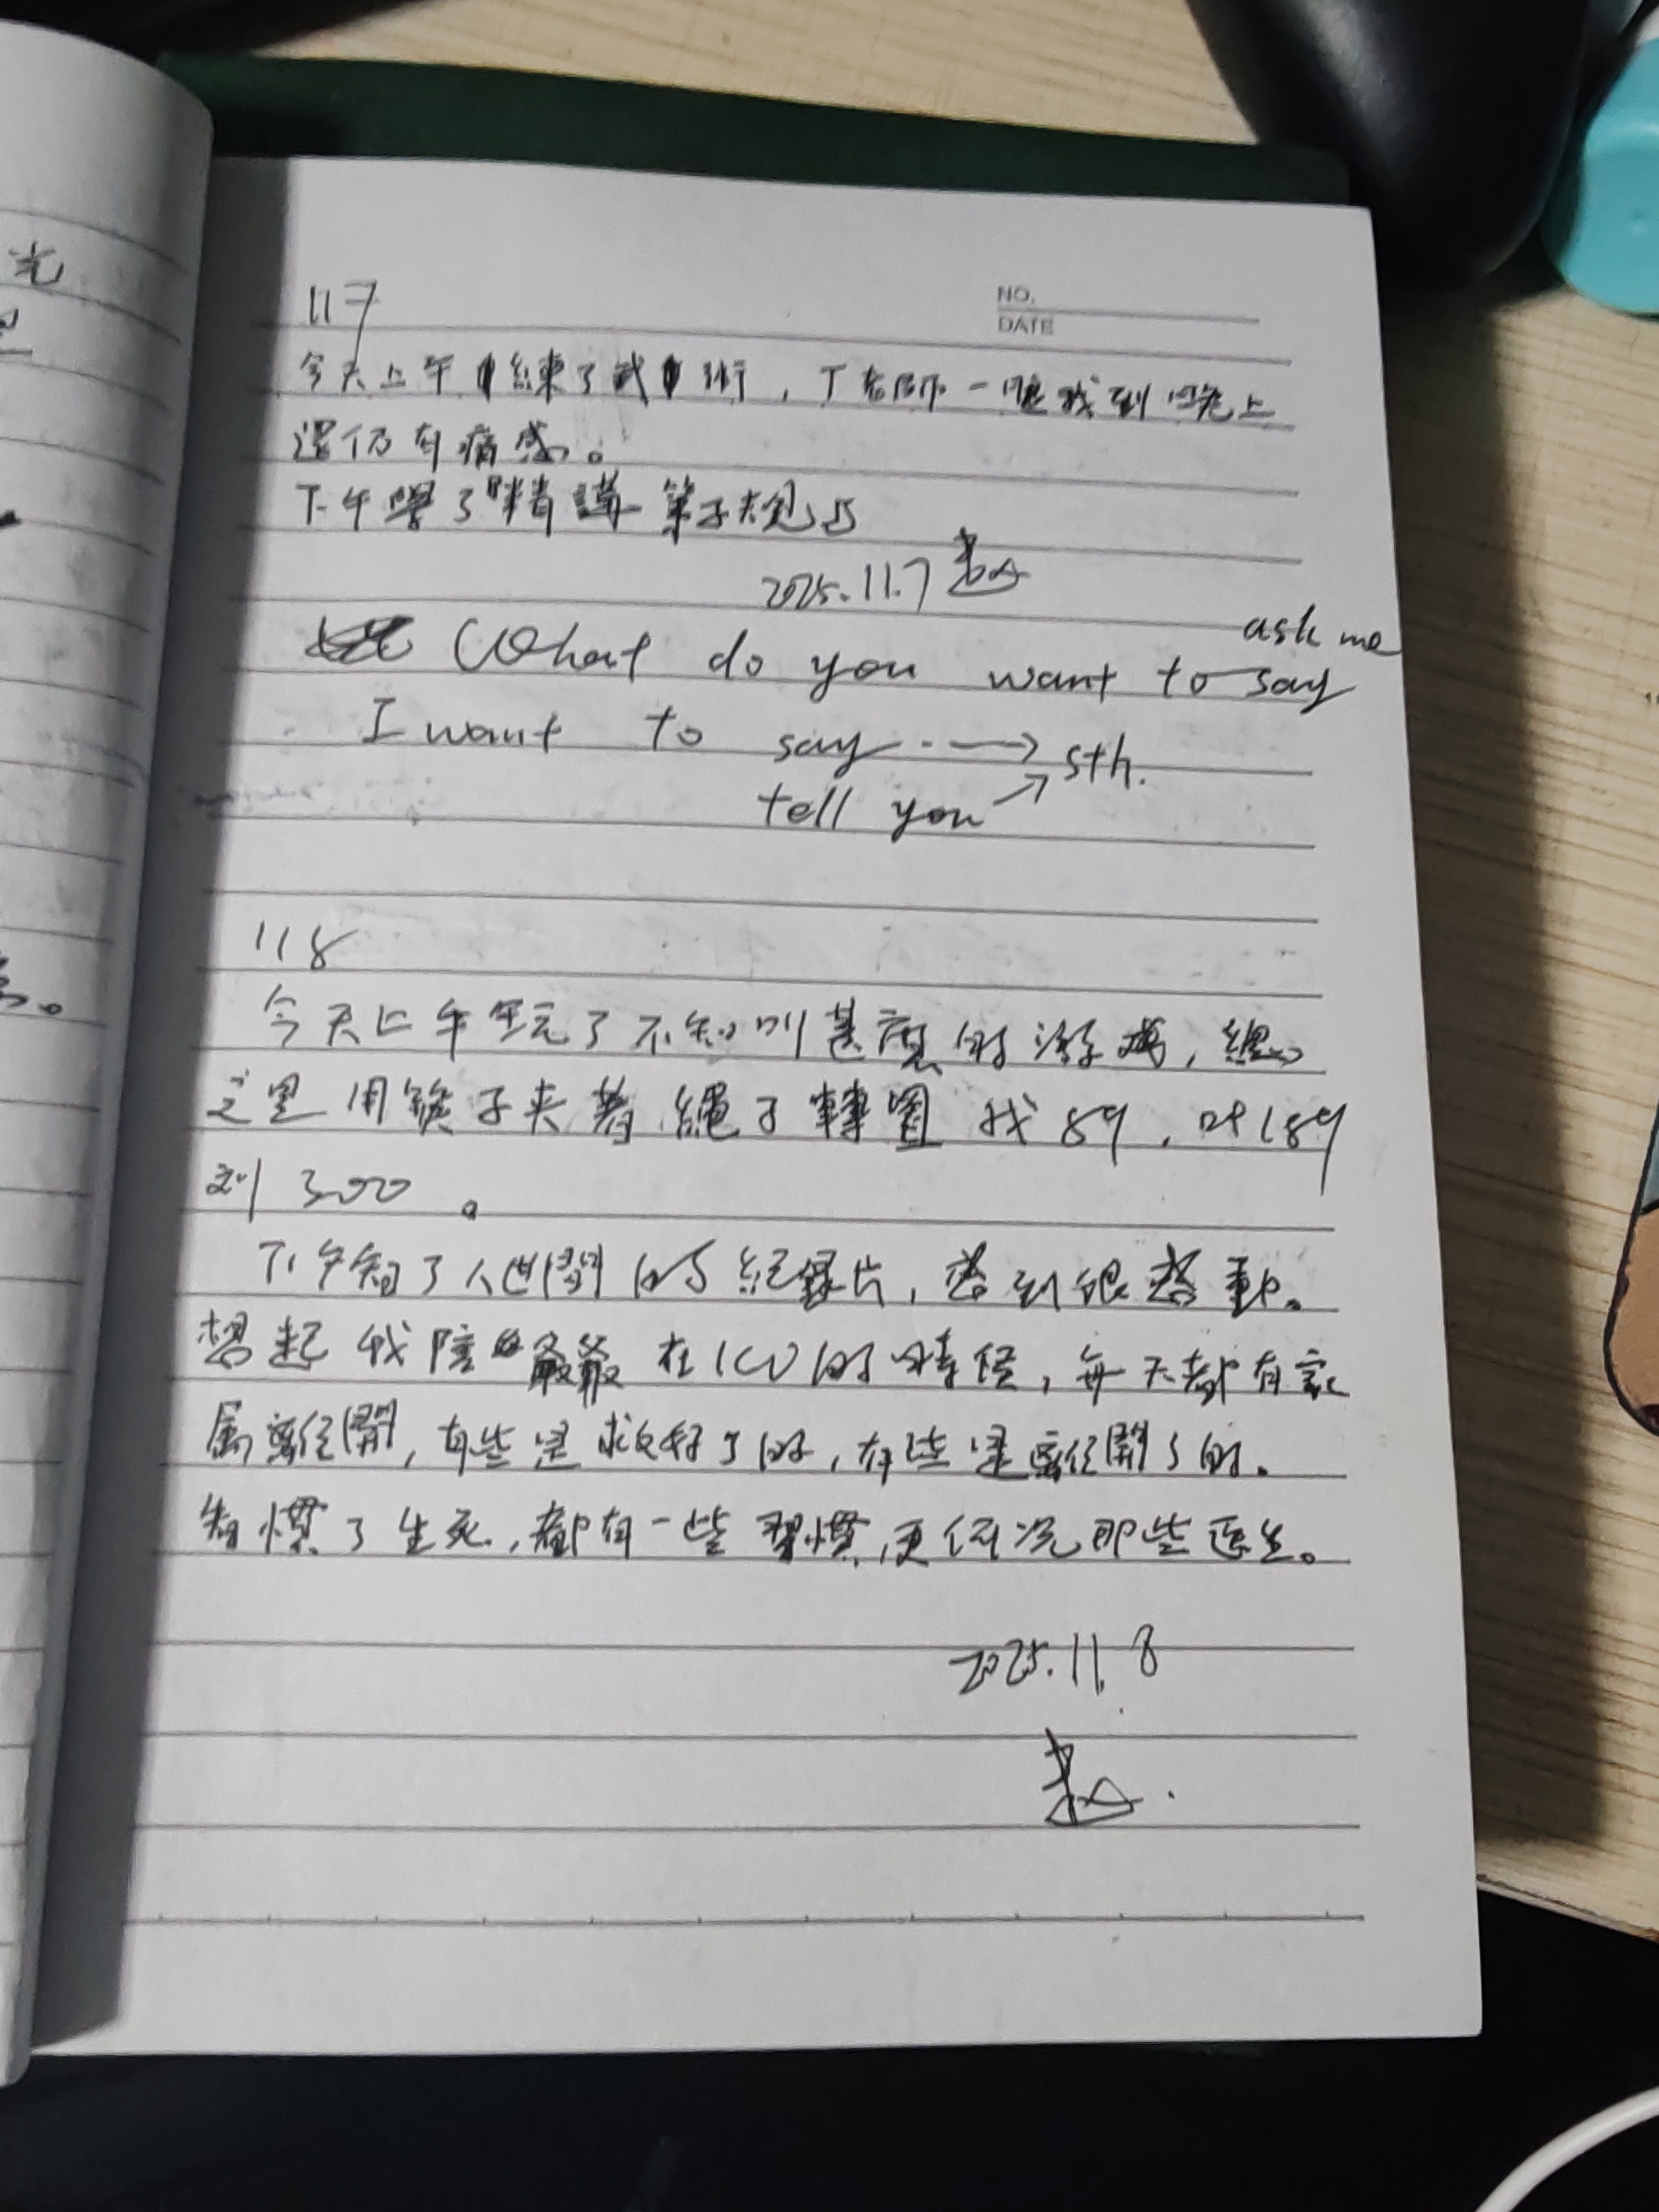 光
117
NO.
DATE
今天上午練了武術，丁老師一腿我到晚上
還仍有痛感。
下午學了『精講弟子規』
2025.11.7
ask me
What do you want to say
I want to say → sth.
tell you ↗
118
今天上午玩了不知叫甚麼的游戏，總
之里用筷子夾著繩子轉圈 找89，叫189
到300。
下午看了人世間的紀錄片，感到很感動。
想起我陪爺爺在ICU的時候，每天都有家
屬離開，有些是救好了的，有些是離開了的。
看慣了生死，都有一些習慣，更何况那些医生。
2025.11.8